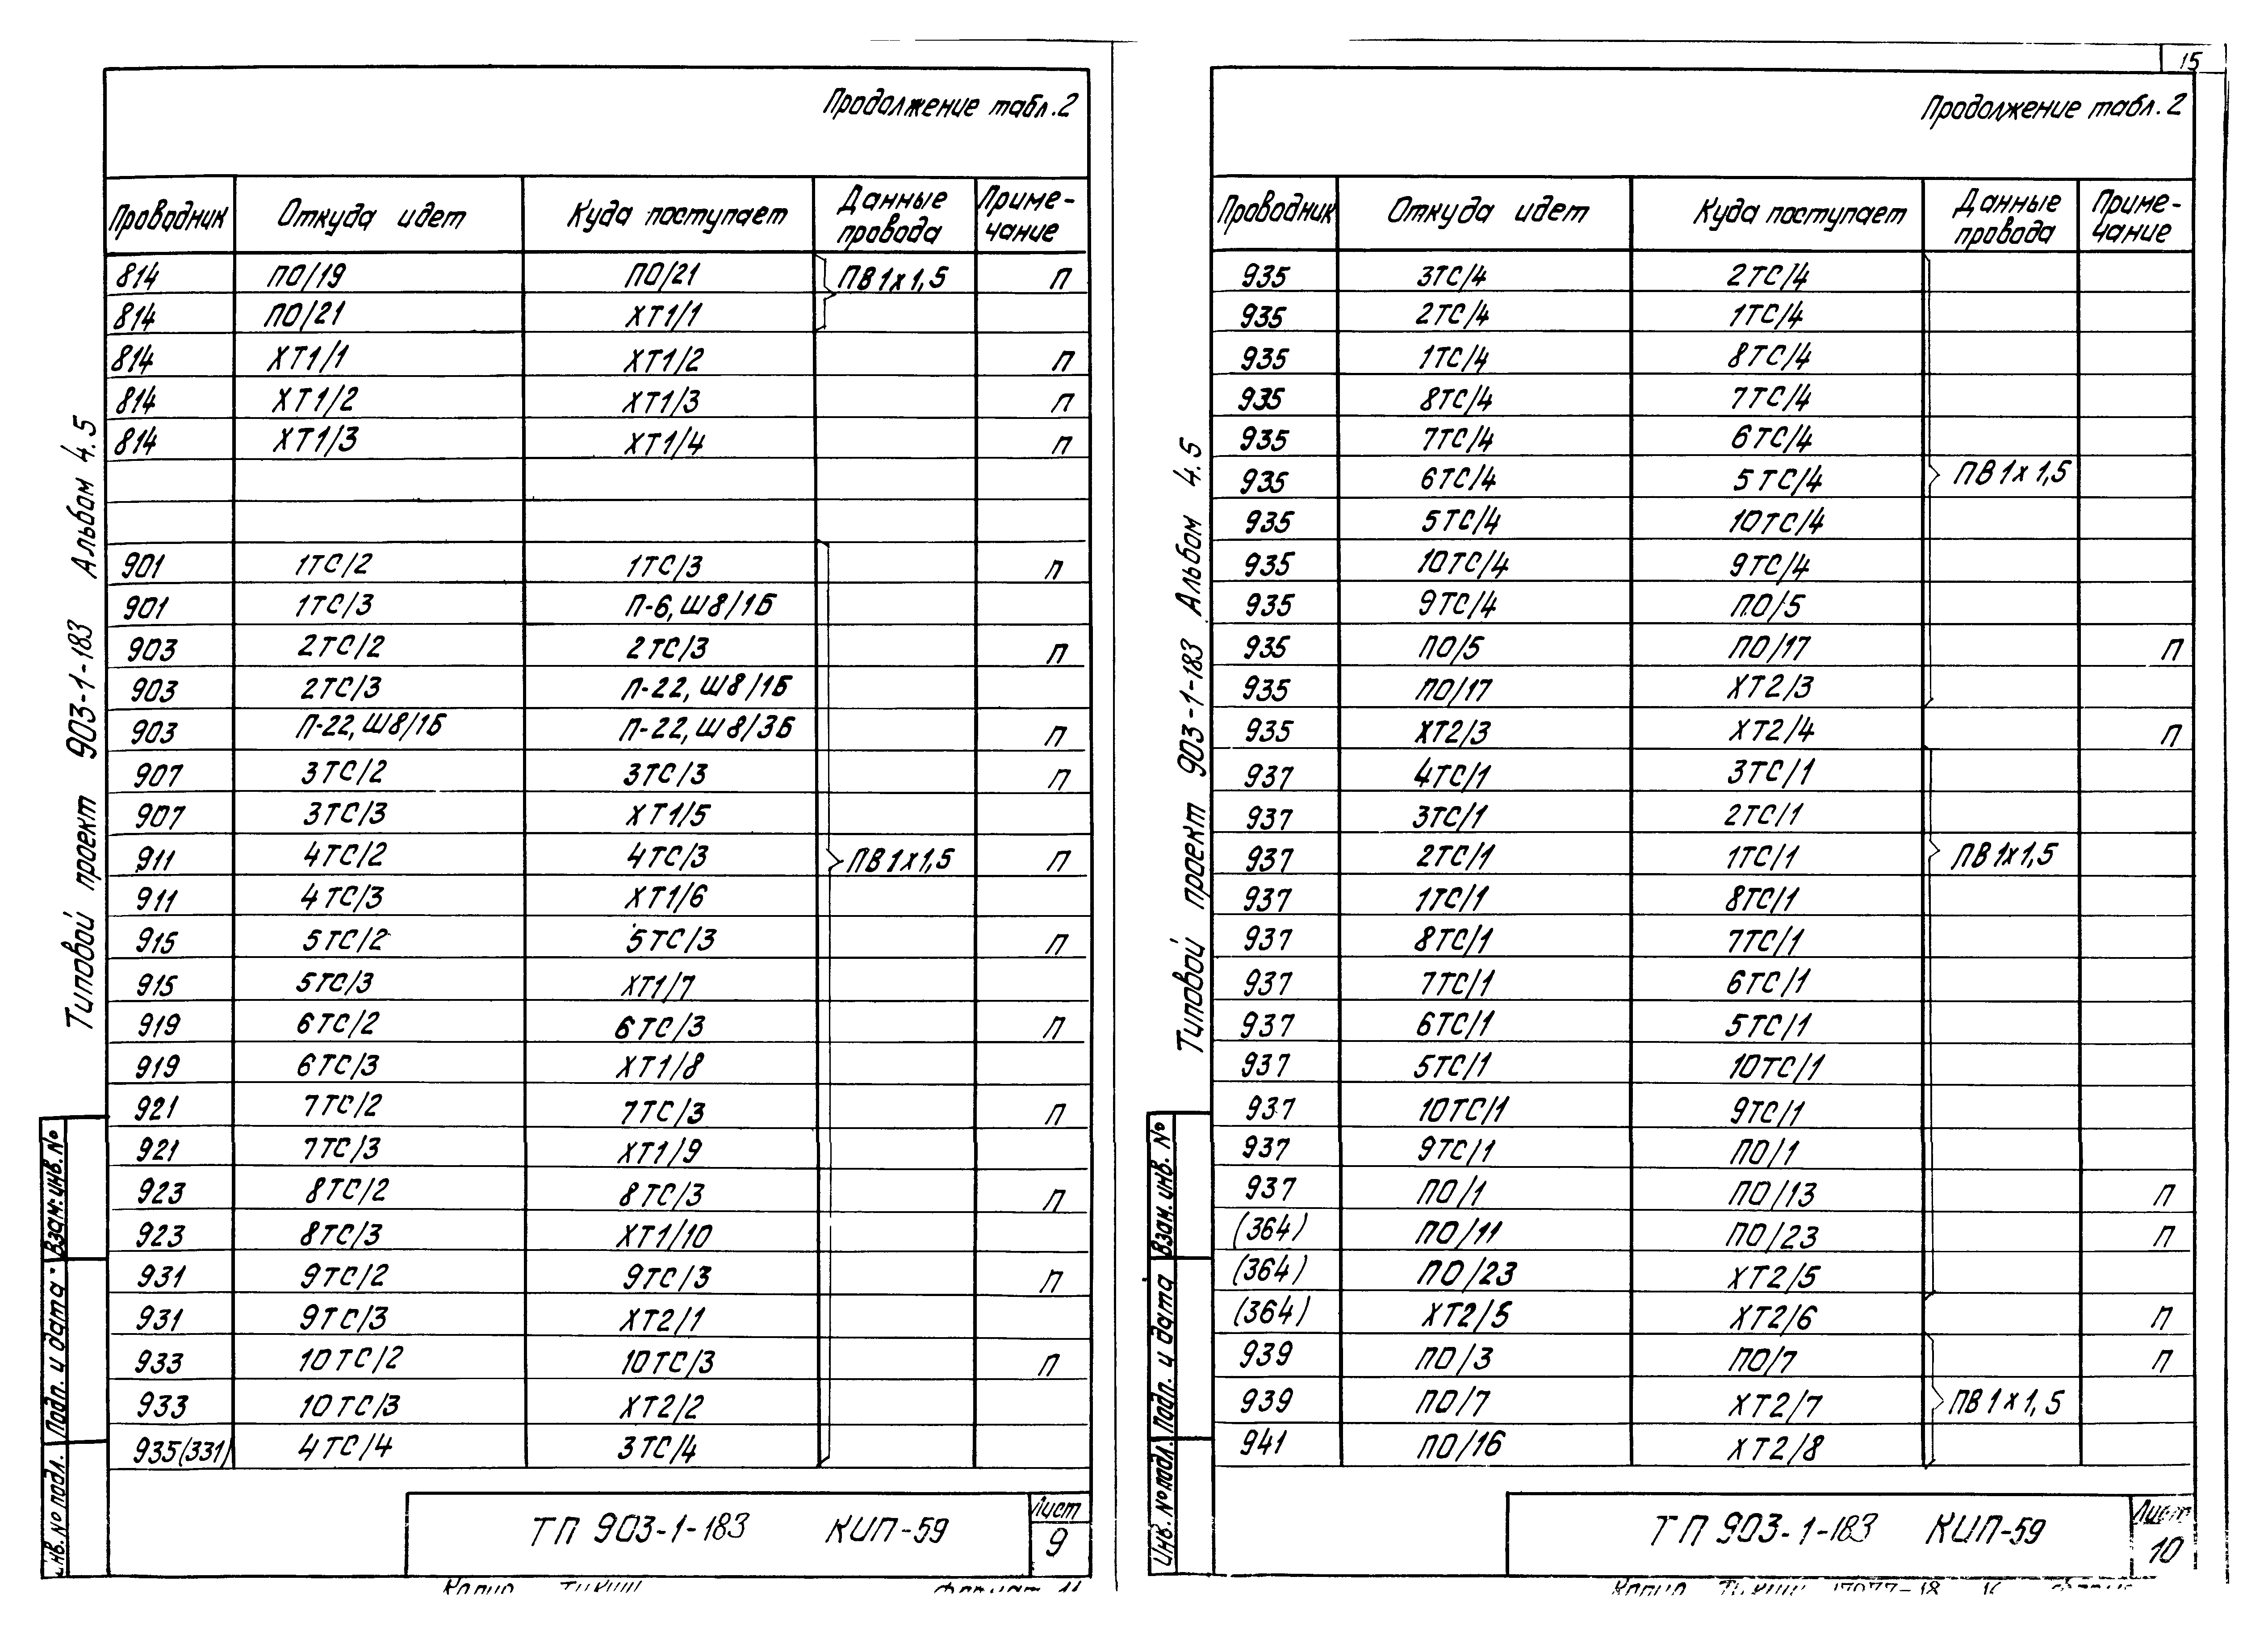 Продолжение табл.2
Проводник Откуда идет Куда поступает Данные провода Приме-чание
814 ПО/19 ПО/21 ПВ1х1,5 п
814 ПО/21 ХТ1/1
814 ХТ1/1 ХТ1/2 п
814 ХТ1/2 ХТ1/3 п
814 ХТ1/3 ХТ1/4 п
901 1ТС/2 1ТС/3 п
901 1ТС/3 П-6, Ш8/1Б
903 2ТС/2 2ТС/3 п
903 2ТС/3 П-22, Ш8/1Б
903 П-22, Ш8/1Б П-22, Ш8/3Б п
907 3ТС/2 3ТС/3 п
907 3ТС/3 ХТ1/5
911 4ТС/2 4ТС/3 ПВ1х1,5 п
911 4ТС/3 ХТ1/6
915 5ТС/2 5ТС/3 п
915 5ТС/3 ХТ1/7
919 6ТС/2 6ТС/3 п
919 6ТС/3 ХТ1/8
921 7ТС/2 7ТС/3 п
921 7ТС/3 ХТ1/9
923 8ТС/2 8ТС/3 п
923 8ТС/3 ХТ1/10
931 9ТС/2 9ТС/3 п
931 9ТС/3 ХТ2/1
933 10ТС/2 10ТС/3 п
933 10ТС/3 ХТ2/2
935(331) 4ТС/4 3ТС/4
ТП 903-1-183 КИП-59
Лист
9
Типовой проект 903-1-183 Альбом 4.5
Взам.инв.№
Подп. и дата
нв.№ подл.
15
Продолжение табл.2
Проводник Откуда идет Куда поступает Данные провода Приме-чание
935 3ТС/4 2ТС/4
935 2ТС/4 1ТС/4
935 1ТС/4 8ТС/4
935 8ТС/4 7ТС/4
935 7ТС/4 6ТС/4
935 6ТС/4 5ТС/4 ПВ1х1,5
935 5ТС/4 10ТС/4
935 10ТС/4 9ТС/4
935 9ТС/4 ПО/5
935 ПО/5 ПО/17 п
935 ПО/17 ХТ2/3
935 ХТ2/3 ХТ2/4 п
937 4ТС/1 3ТС/1
937 3ТС/1 2ТС/1
937 2ТС/1 1ТС/1 ПВ1х1,5
937 1ТС/1 8ТС/1
937 8ТС/1 7ТС/1
937 7ТС/1 6ТС/1
937 6ТС/1 5ТС/1
937 5ТС/1 10ТС/1
937 10ТС/1 9ТС/1
937 9ТС/1 ПО/1
937 ПО/1 ПО/13 п
(364) ПО/11 ПО/23 п
(364) ПО/23 ХТ2/5
(364) ХТ2/5 ХТ2/6 п
939 ПО/3 ПО/7 п
939 ПО/7 ХТ2/7 ПВ1х1,5
941 ПО/16 ХТ2/8
ТП 903-1-183 КИП-59
Лист
10
Типовой проект 903-1-183 Альбом 4.5
Взам.инв.№
Подп. и дата
Инв.№подл.